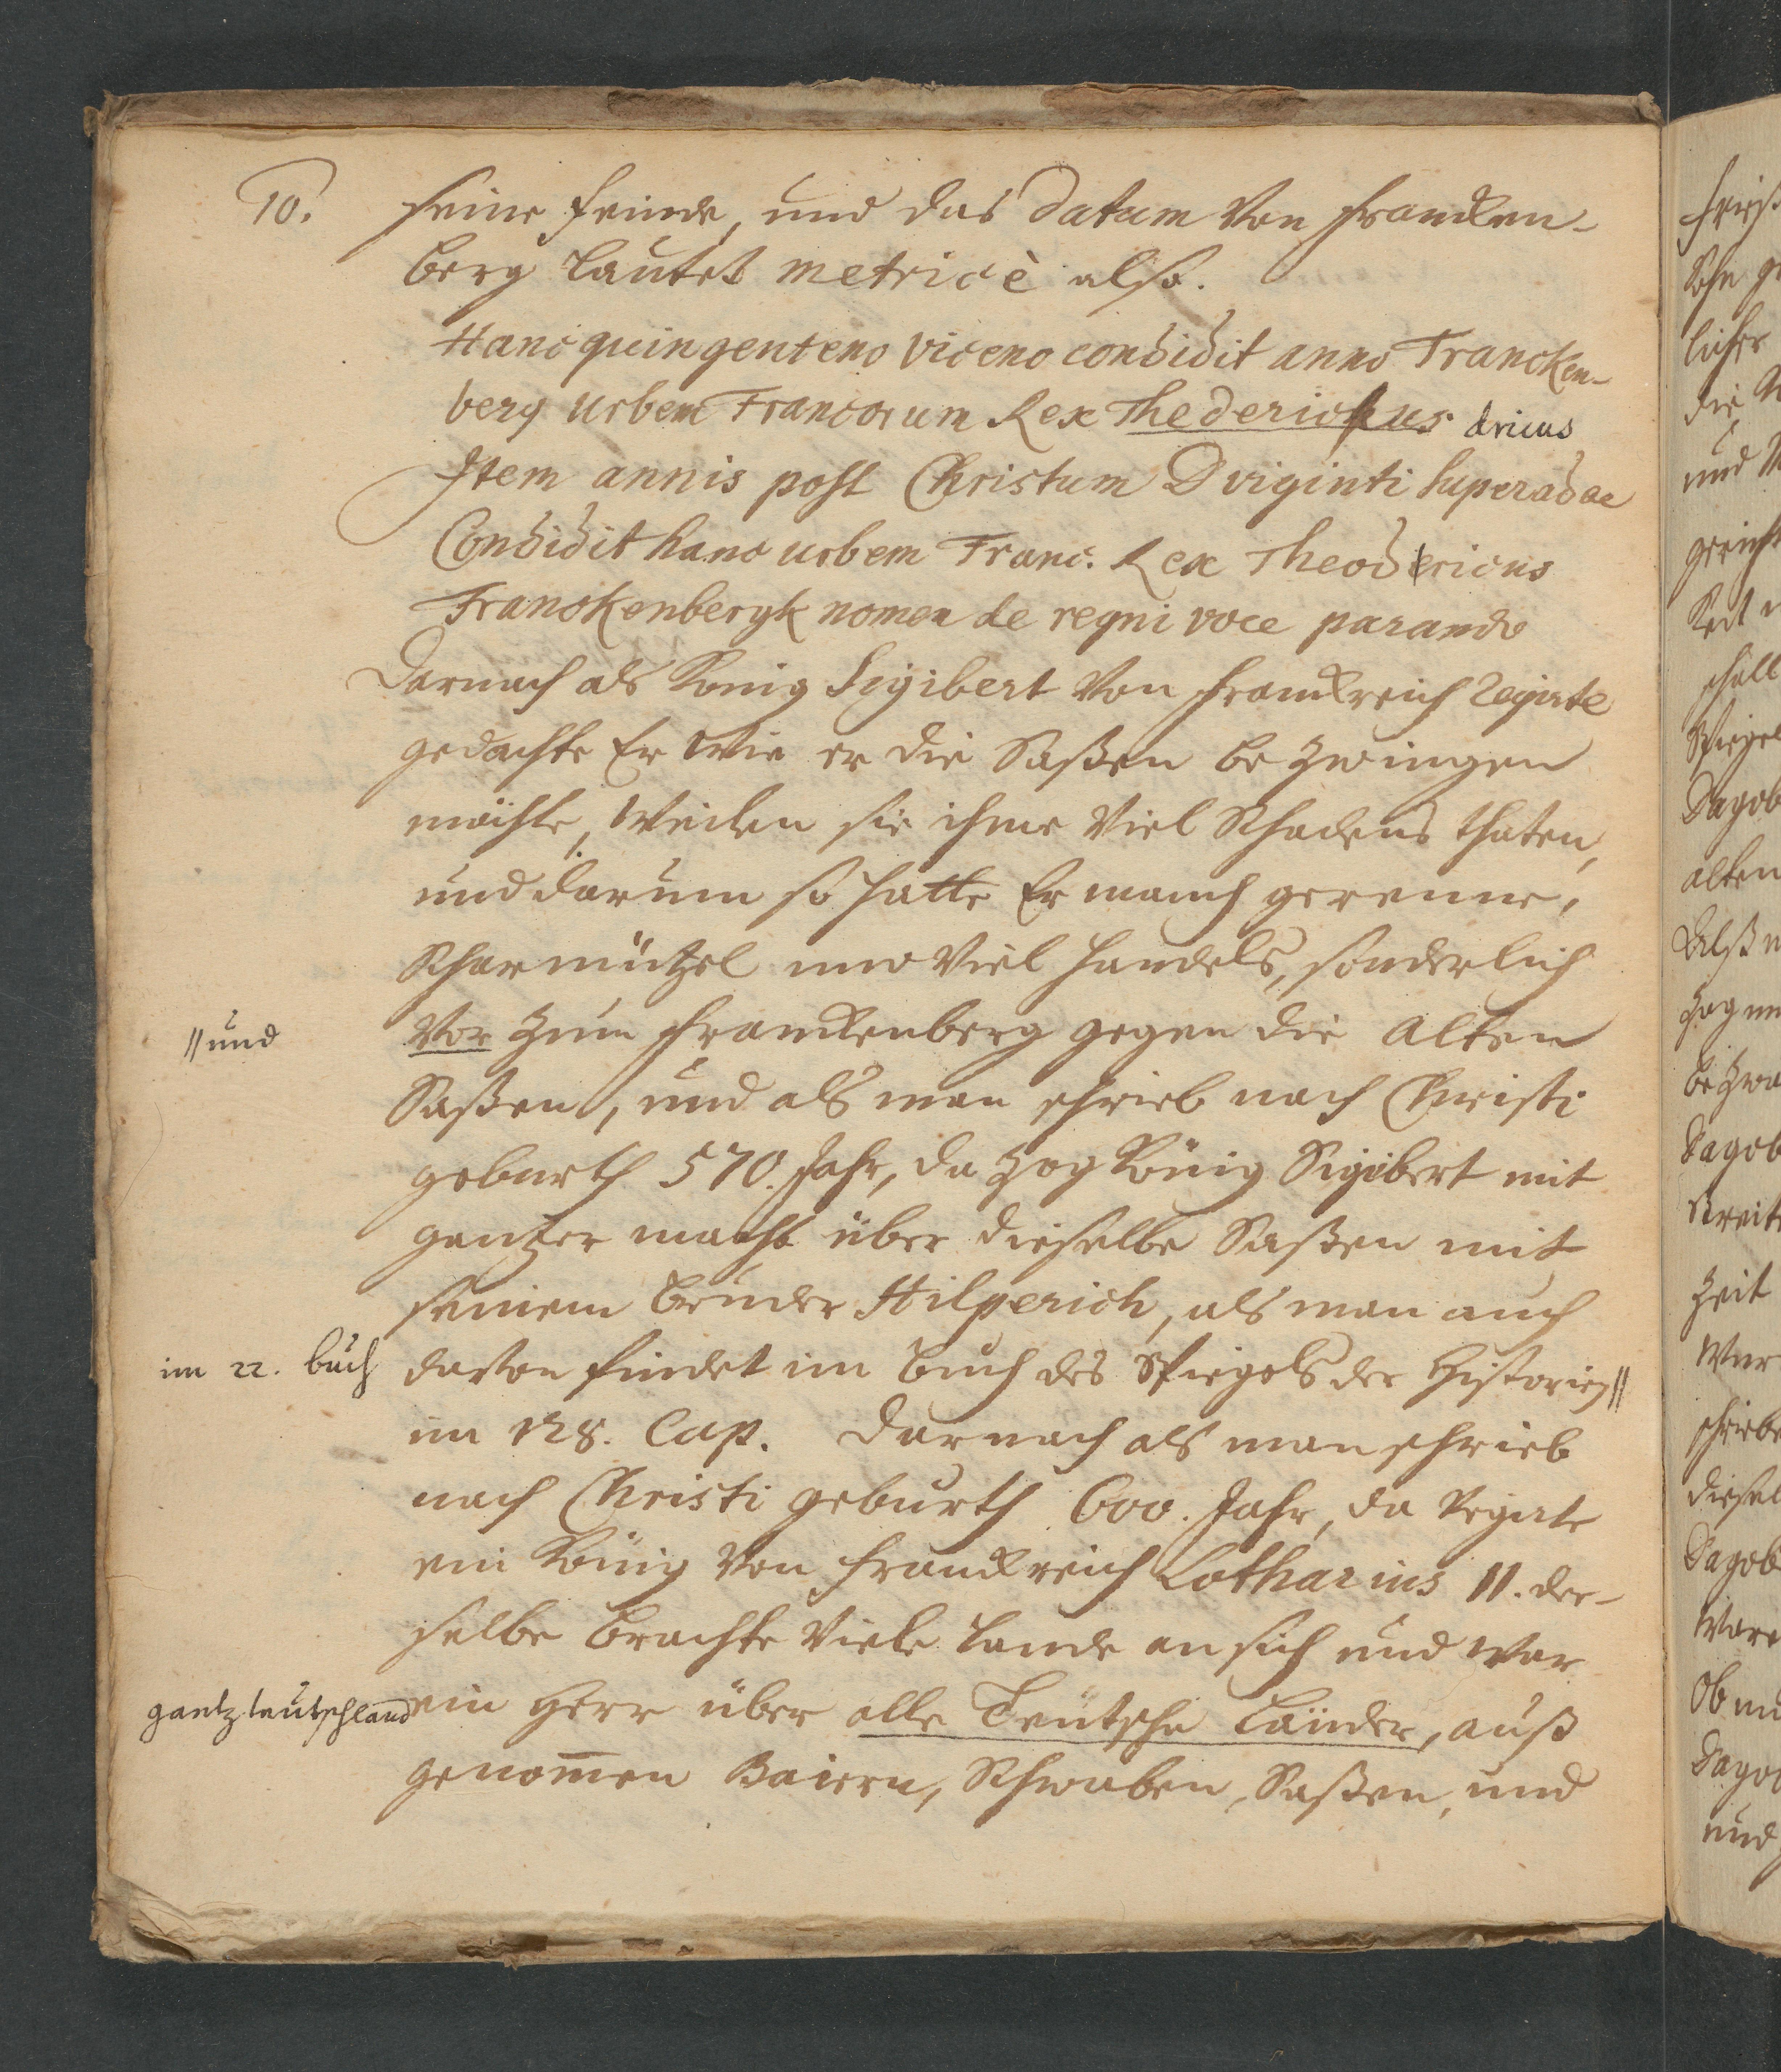 10.
seine feinde, und das Datum von francken-
berg lautet metricè also.
Hanc quingenteno viceno condidit anno Francken-
berg urbem Francorum Rex Thederickus dricus
Item annis post Christum D viginti superadde
Condidit hanc urbem Franc. Rex Theodericus
Franckenbergk nomen de regni voce parando
Darnach als König Sigibert von franckreich Regirte
gedachte Er wie er die Saßen bezwingen
möchte, weilen sie ihme viel Schadens thaten,
und darum so hatte Er manch gerenne,
Scharmützel und viel handels, sonderlich
vor zum franckenberg gegen die Alten
//und
Saßen, und als man schrieb nach Christi
geburth 570. Jahr, da zog König Sigibert mit
gantzer macht über dieselbe Saßen mit
seinem bruder Hilperich, als man auch
davon findet im buch des Spiegels der Historien//
im 22. buch
im 128. Cap. Darnach als man schrieb
nach Christi geburth 600. Jahr, da Regirte
ein König von franckreich Lotharius II. der-
selbe brachte viele lande an sich und war
ein Herr über alle Teutsche Länder, auß
gantz teutschland
genom̅en Baiern, Schwaben, Saßen, und